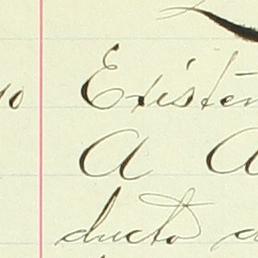 10 Existen
A A
ducto a